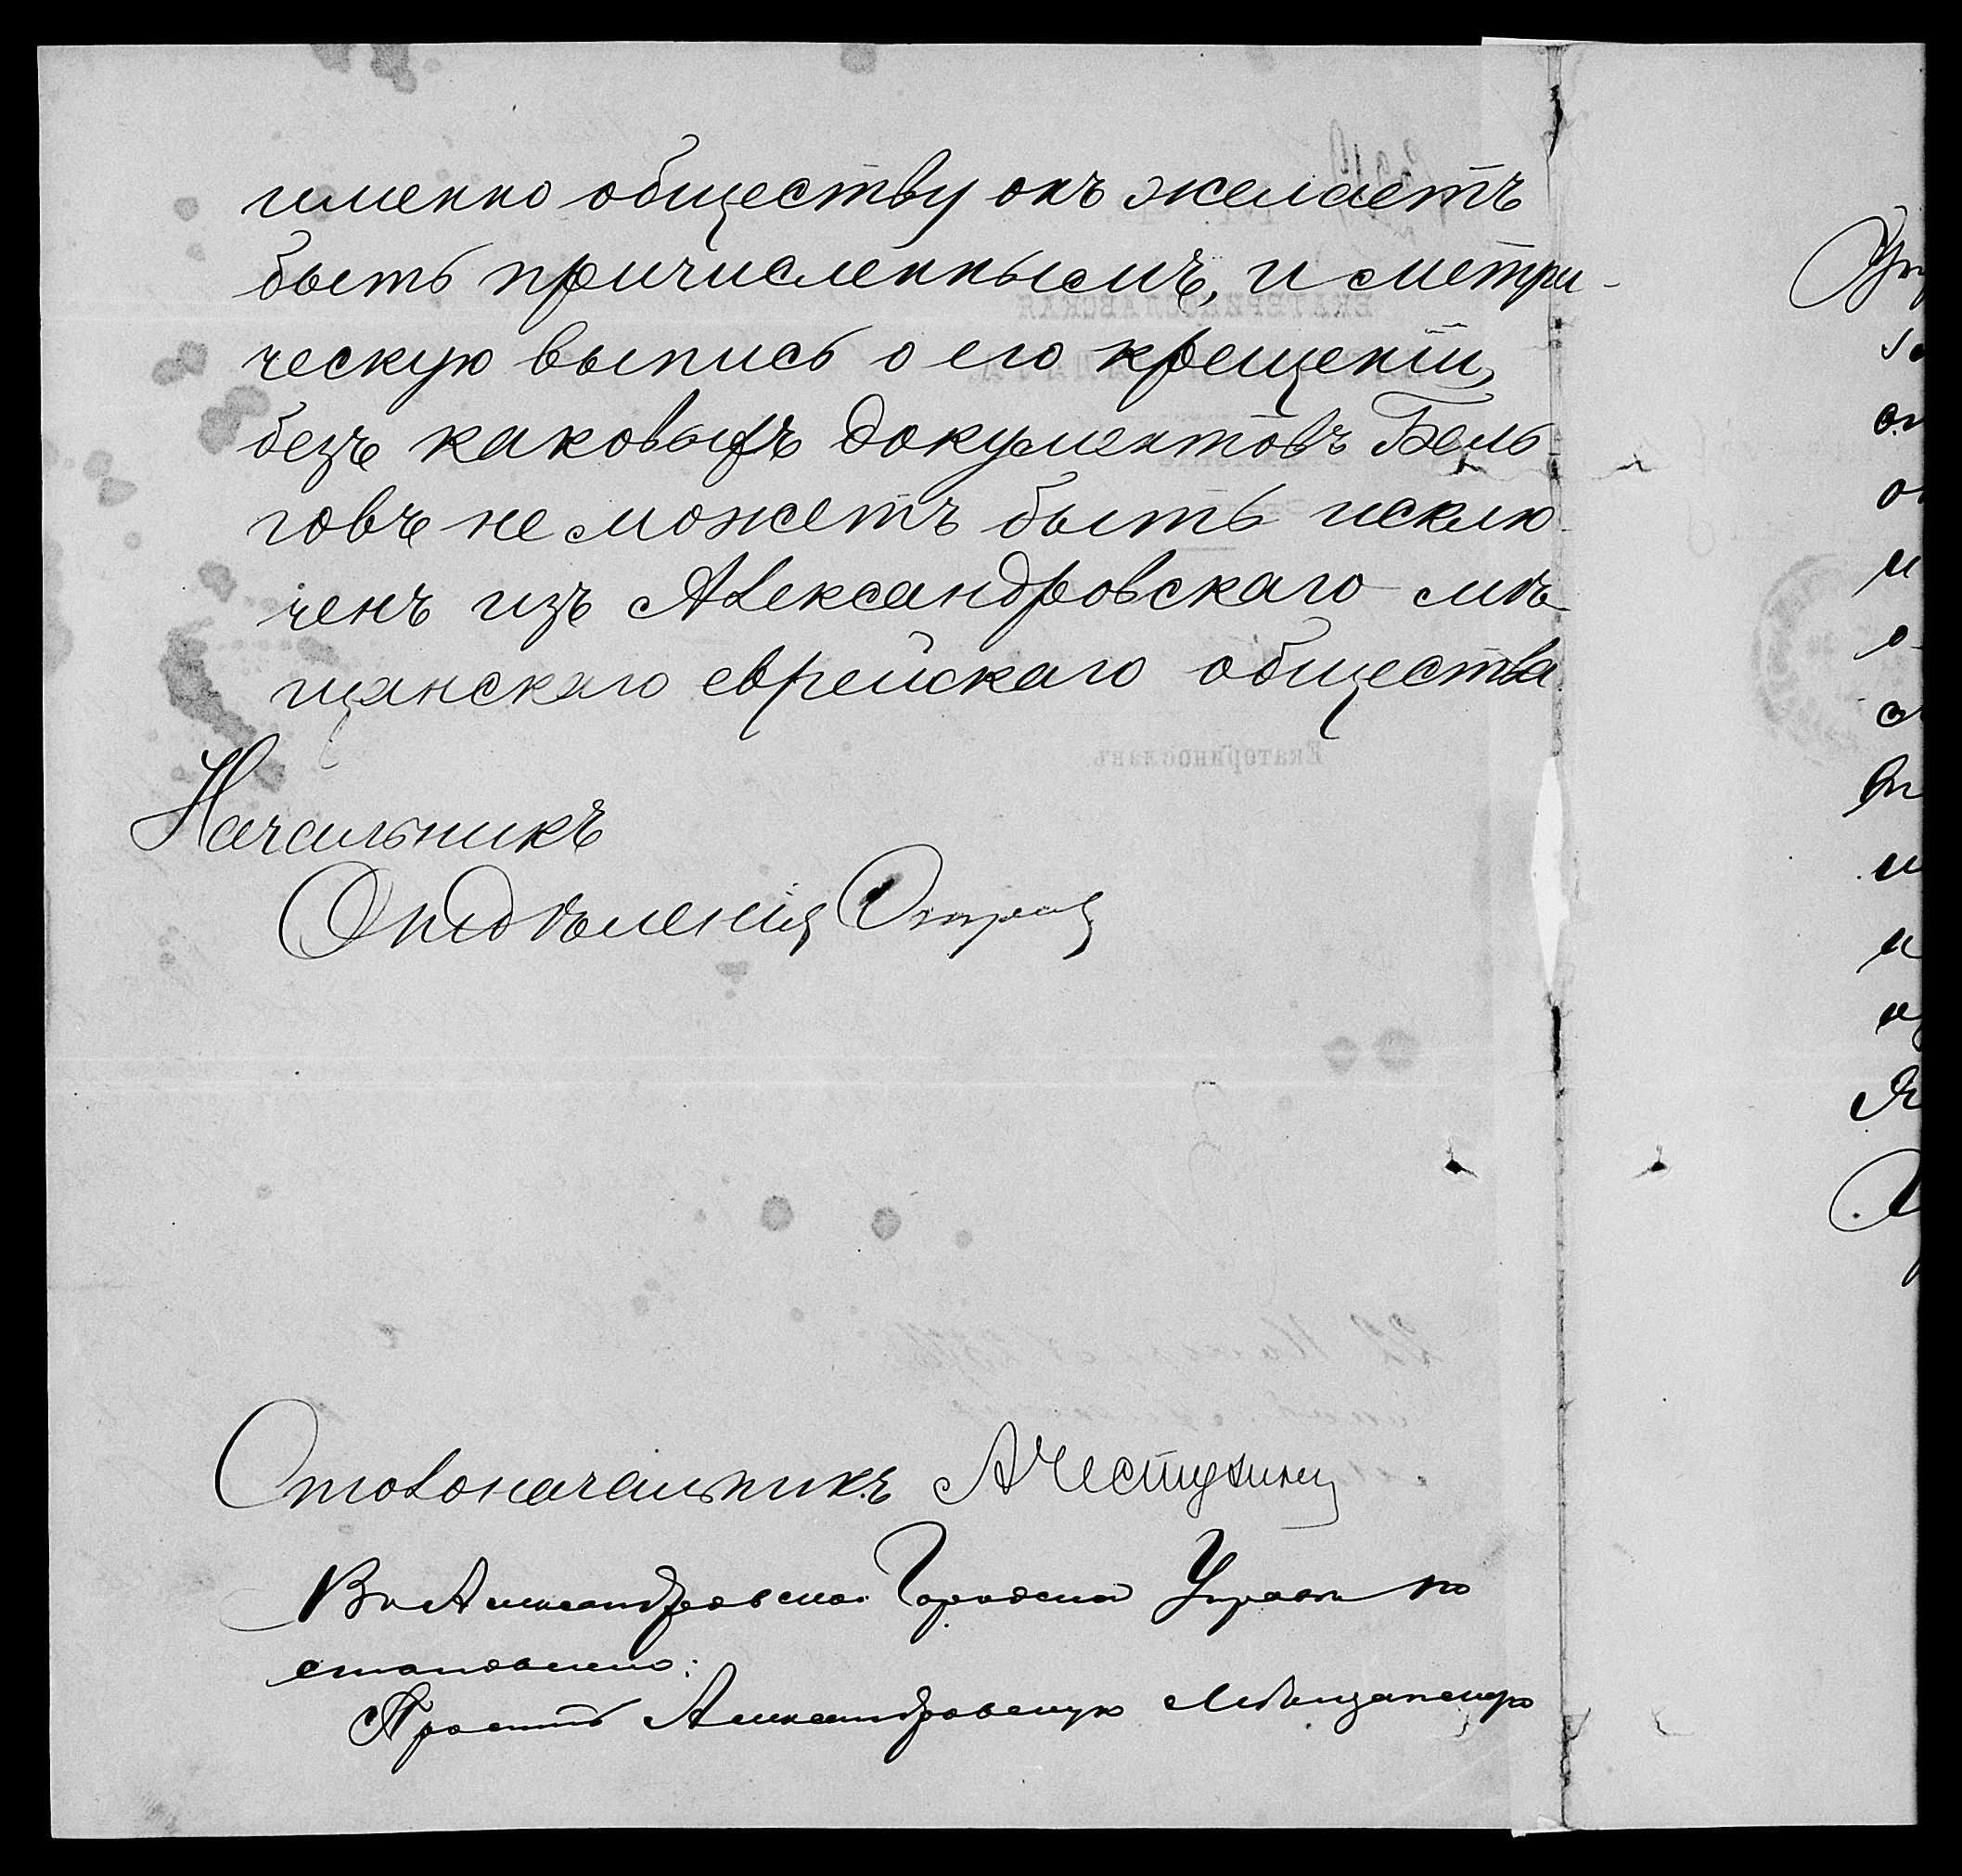 именно обществу онъ желаетъ
быть причисленнымъ, и метри-
ческую выпись о его крещеніи,
безъ каковыхъ документовъ Бель-
говъ не можетъ быть исклю-
ченъ изъ Александровскаго мѣ-
щанскаго еврейскаго общества
Начальникъ
Отдѣленія
Столоначальникъ
Въ Александровской Городской Управѣ по
становлено:
Просить Александровскую Мѣщанскую